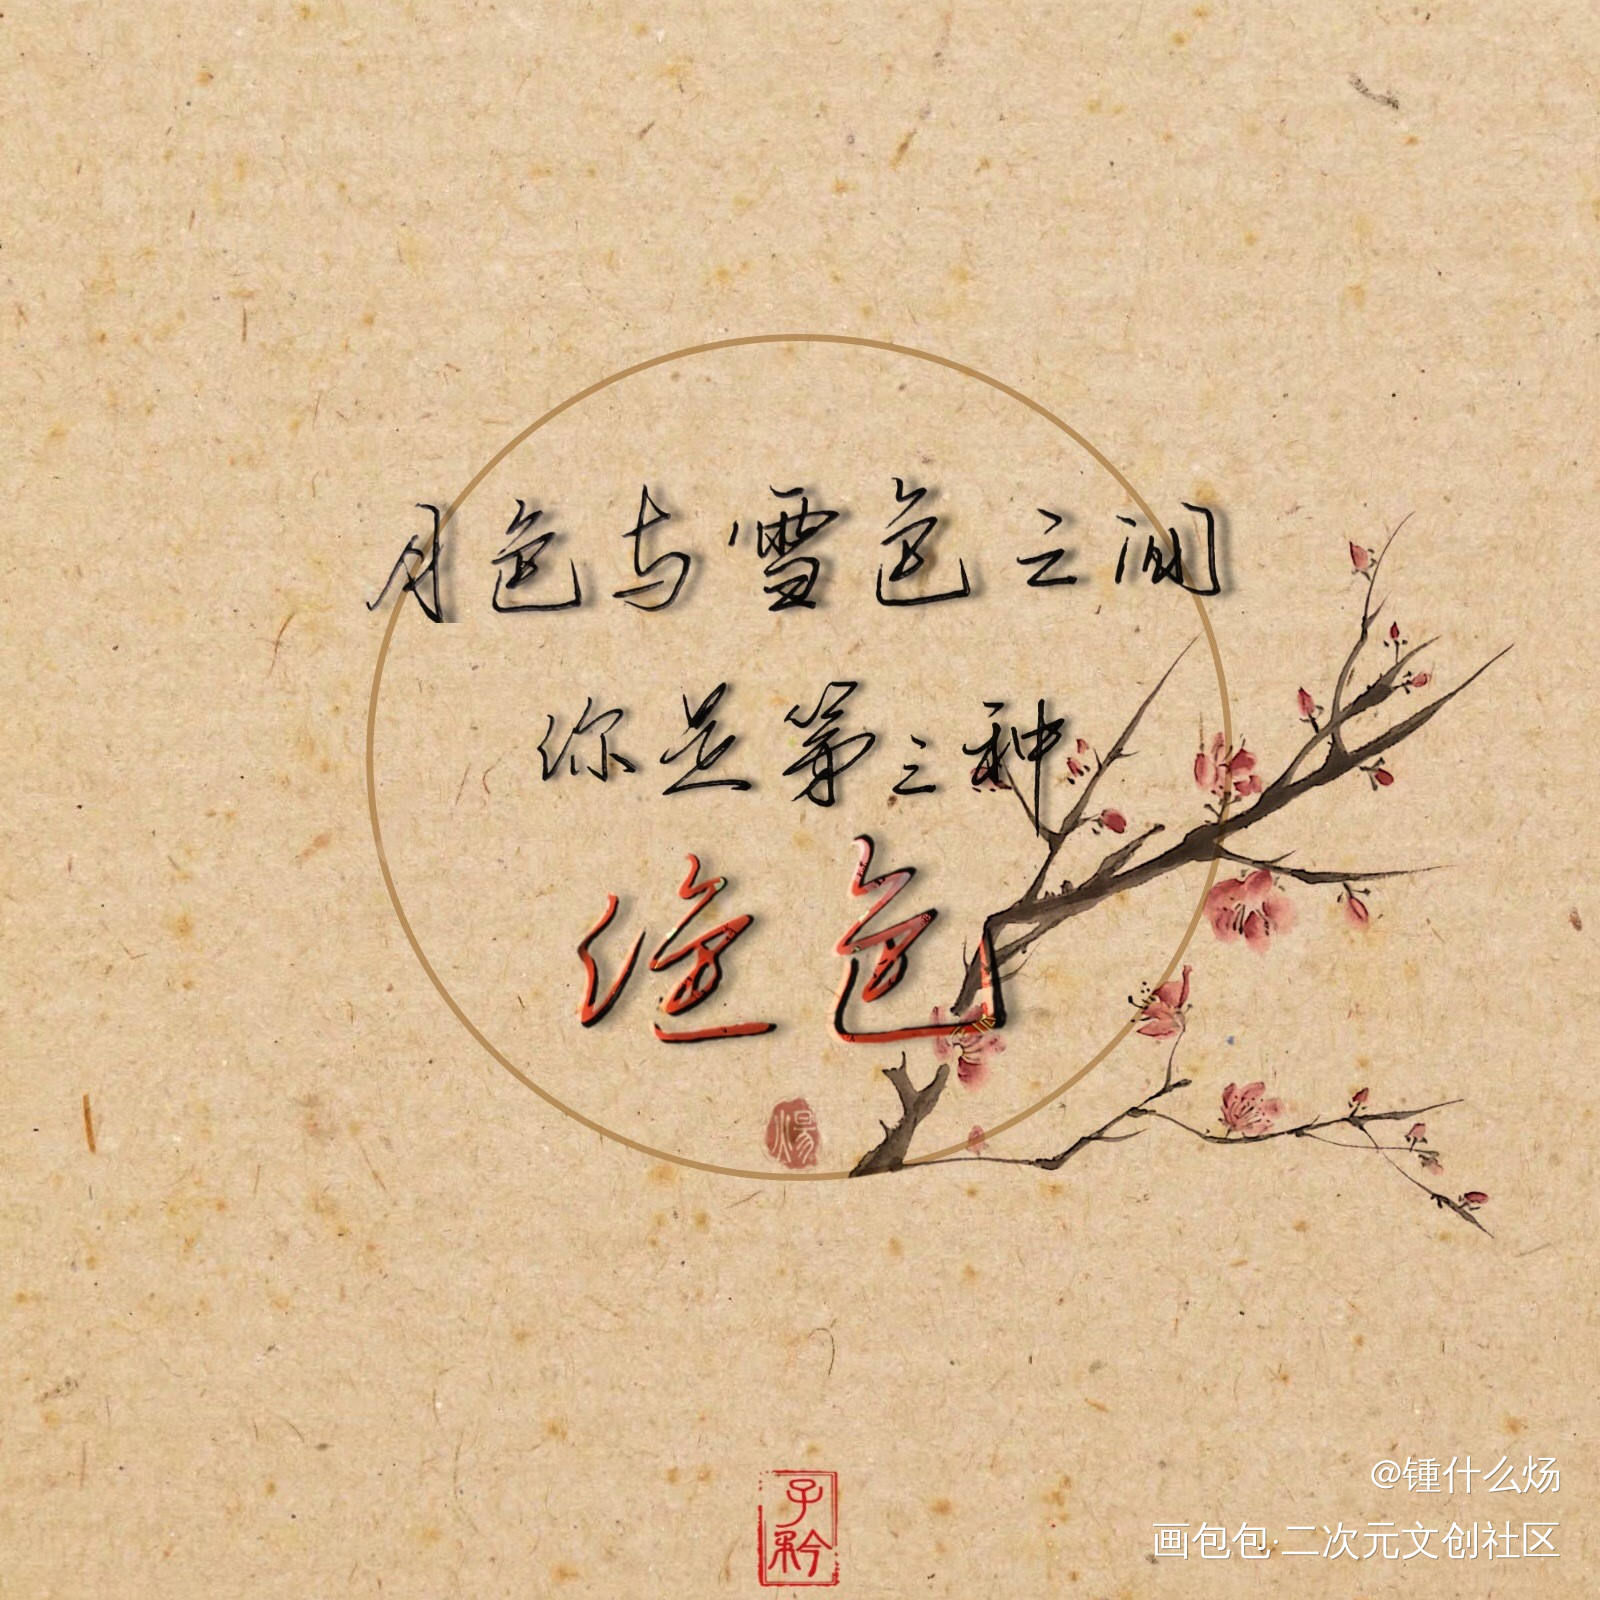 月色与雪色之间
你是第三种
绝色
炀
子衿
@锺什么炀
画包包·二次元文创社区